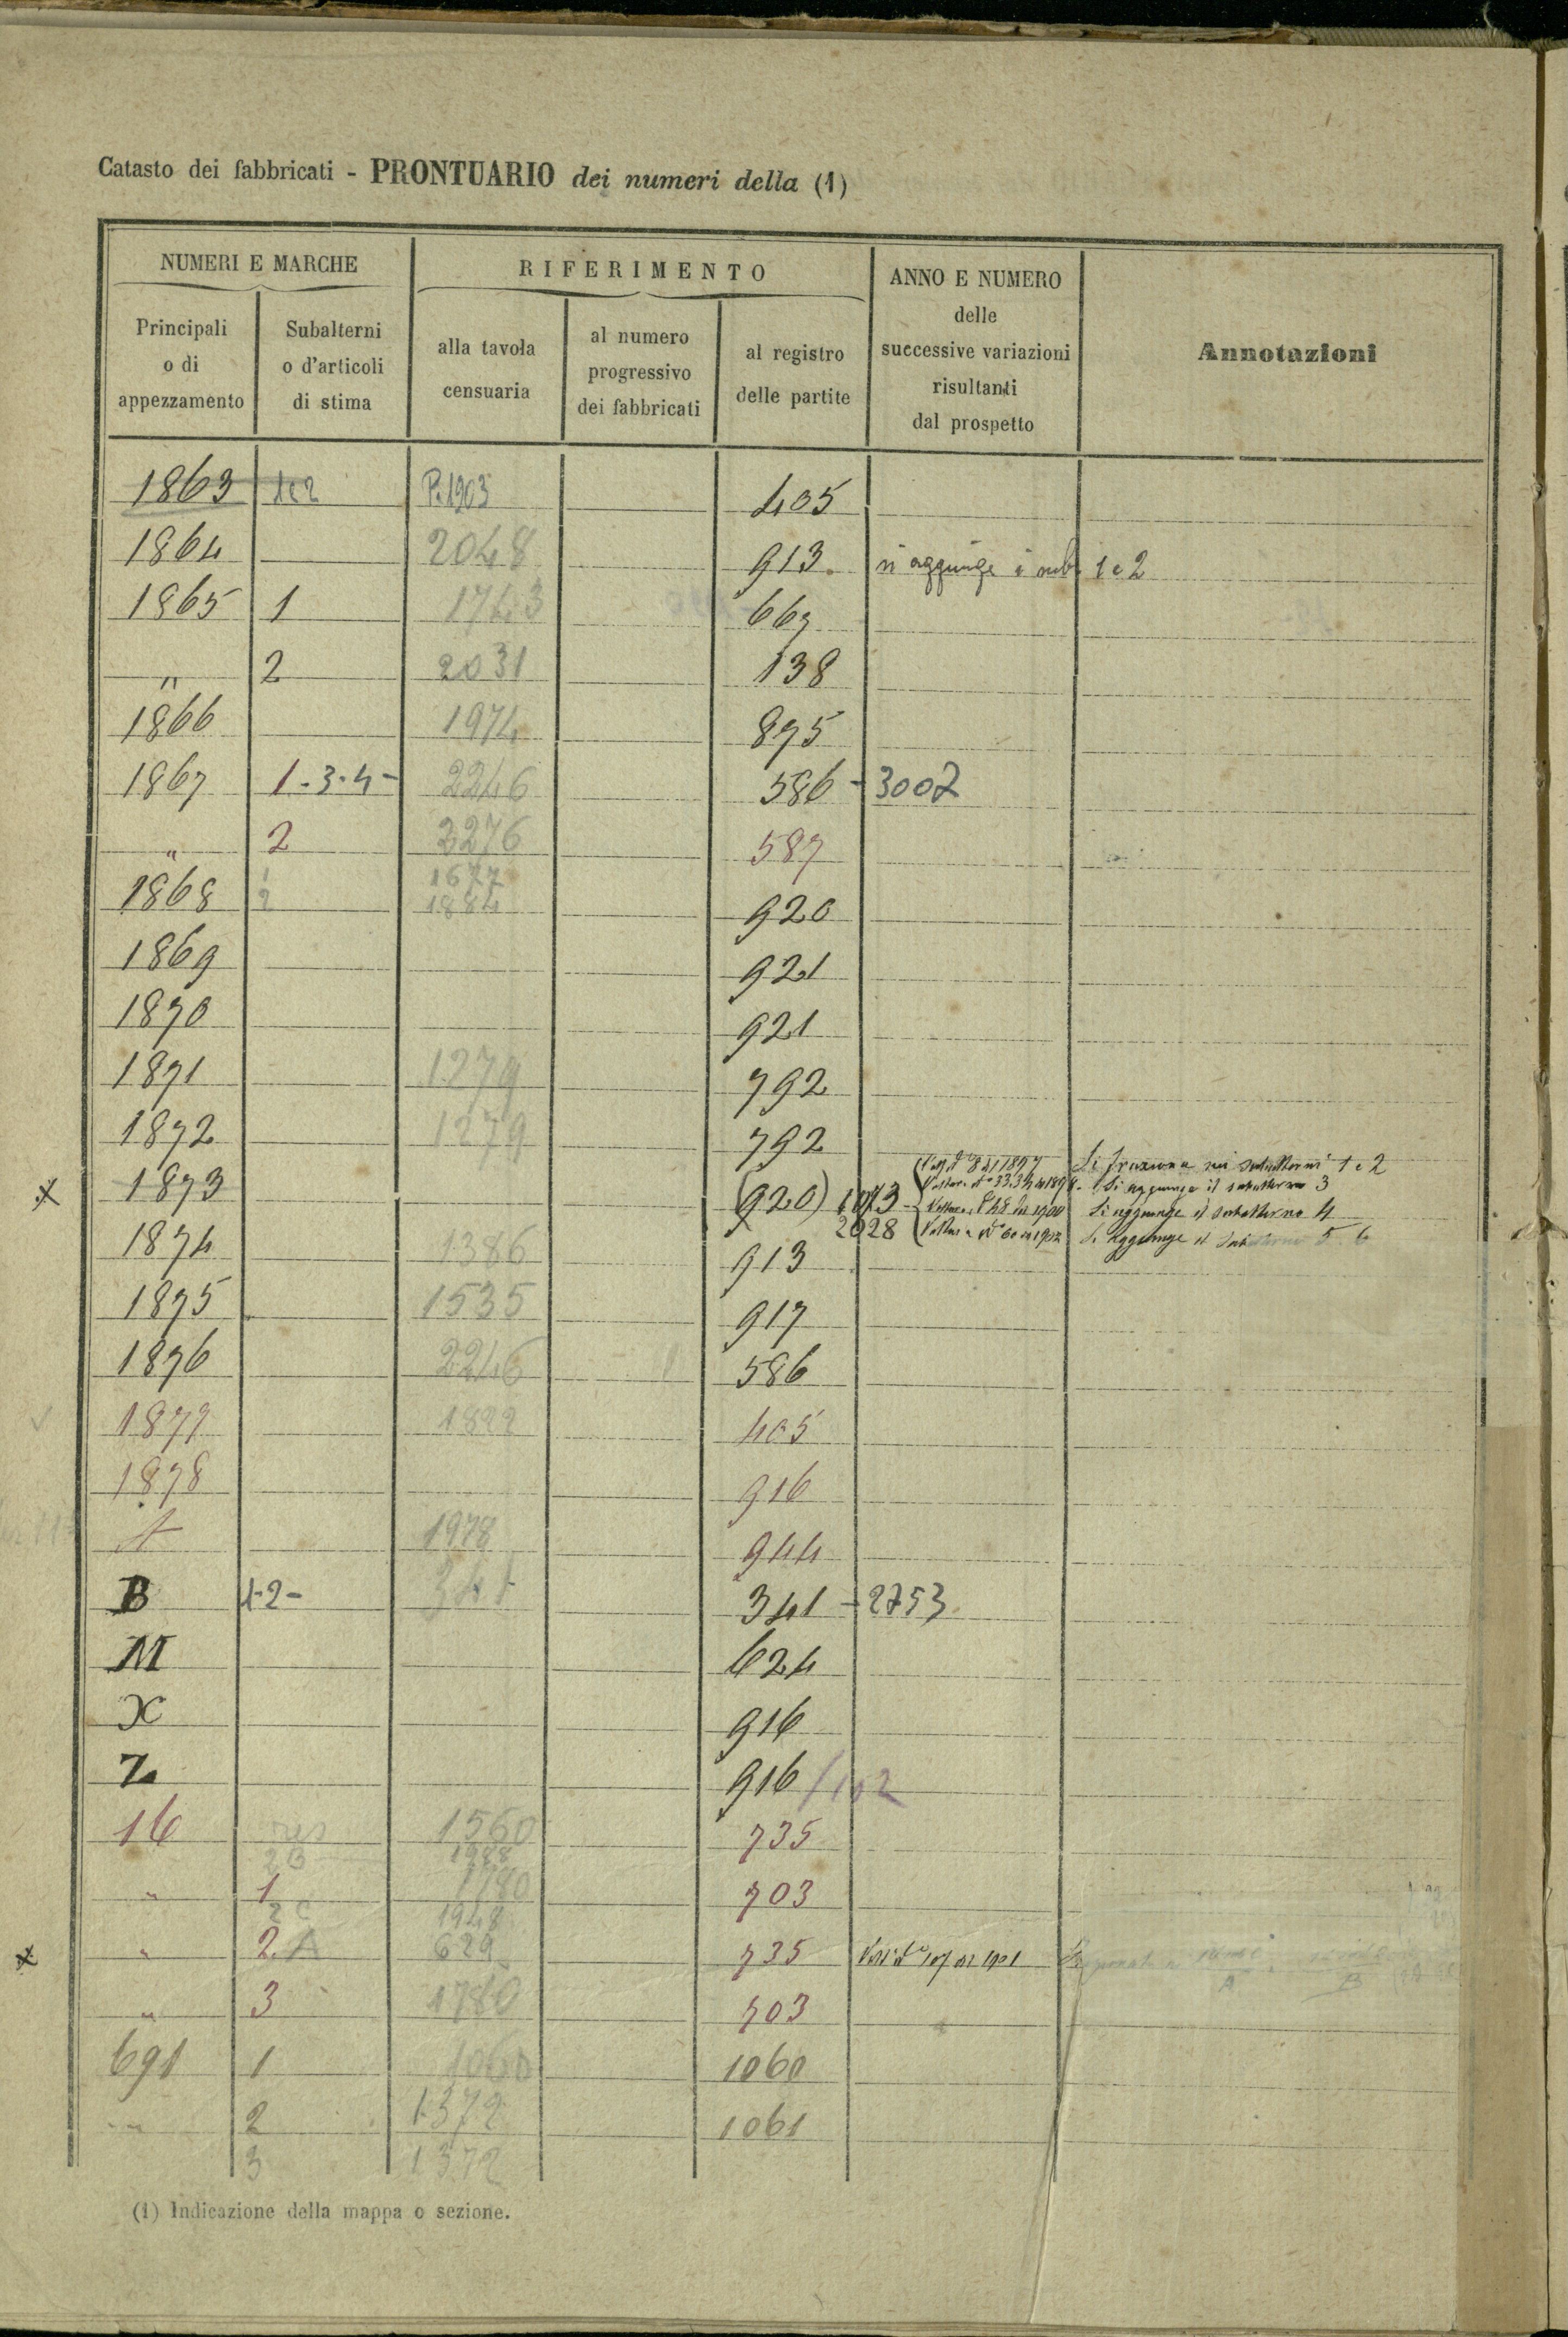 Catasto dei fabbricati - PRONTUARIO dei numeri della (1)
NUMERI E MARCHE
RIFERIMENTO
ANNO E NUMERO
delle
successive variazioni
risultanti
dal prospetto
Annotazioni
Principali
o di
appezzamento
Subalterni
o d'articoli
di stima
alla tavola
censuaria
al numero
progressivo
dei fabbricati
al registro
delle partite
1863 1e2 P.1903 405
1864 2048 913 si aggiunge i sub. 1 e 2
1865 1 1743 667
" 2 2031 138
1866 1974 875
1867 1-3-4- 2246 586 - 3007
" 2 2276 587
1868 1 1677
2 1884 920
1869 921
1870 921
1871 1279 792
1872 1279 792
1873 (920) 1073 Si fraziona nei subalterni 1 e 2
Si aggiunge il subalterno 3
Si aggiunge il subalterno 4
2028 Si aggiunge il subalterno 5 6
1874 1386 913
1875 1535 917
1876 2246 586
1877 1822 405
1878 916
A 1978 944
B 1-2- 341 341 - 2753
M 624
X 916
Z 916 /102
16 1560 735
2B 1988
" 1 1780 703
2C 1948
" 2 A 629 735
" 3 1780 703
691 1 1060 1060
" 2 1372 1061
3 1372
(1) Indicazione della mappa o sezione.